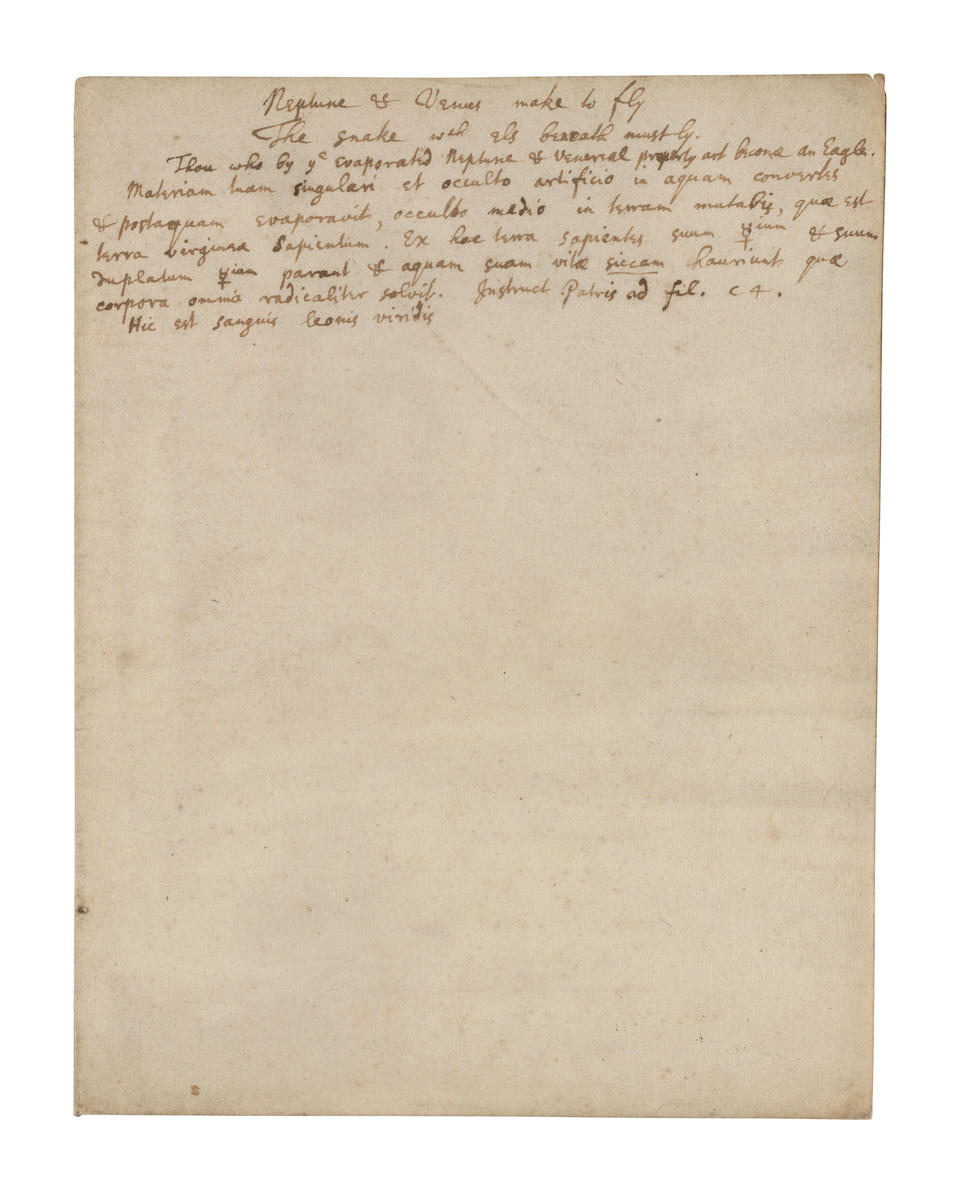 Neptune & Venus make to fly
The snake wch els beneath must ly.
Thou who by ye evaporated Neptune & Venereal property art become an Eagle.
Materiam tuam singulari et occulto artificio in aquam convertes
& postaquam evaporavit, occulto medio in terram mutabis, quæ est
terra virginea Sapientum. Ex hac terra sapientes suum ☿ium & suum
duplatum ☿ium parant & aquam suam vitæ siccam hauriunt quæ
corpora omnia radicaliter solvit. Instruct Patris ad fil. c 4.
Hic est sanguis leonis viridis